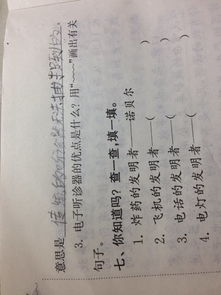 意思是
3. 电子听诊器的优点是什么？用“﹏﹏”画出有关
句子。
七、你知道吗？查一查，填一填。
1. 炸药的发明者——诺贝尔
2. 飞机的发明者——( )
3. 电话的发明者——( )
4. 电灯的发明者——( )